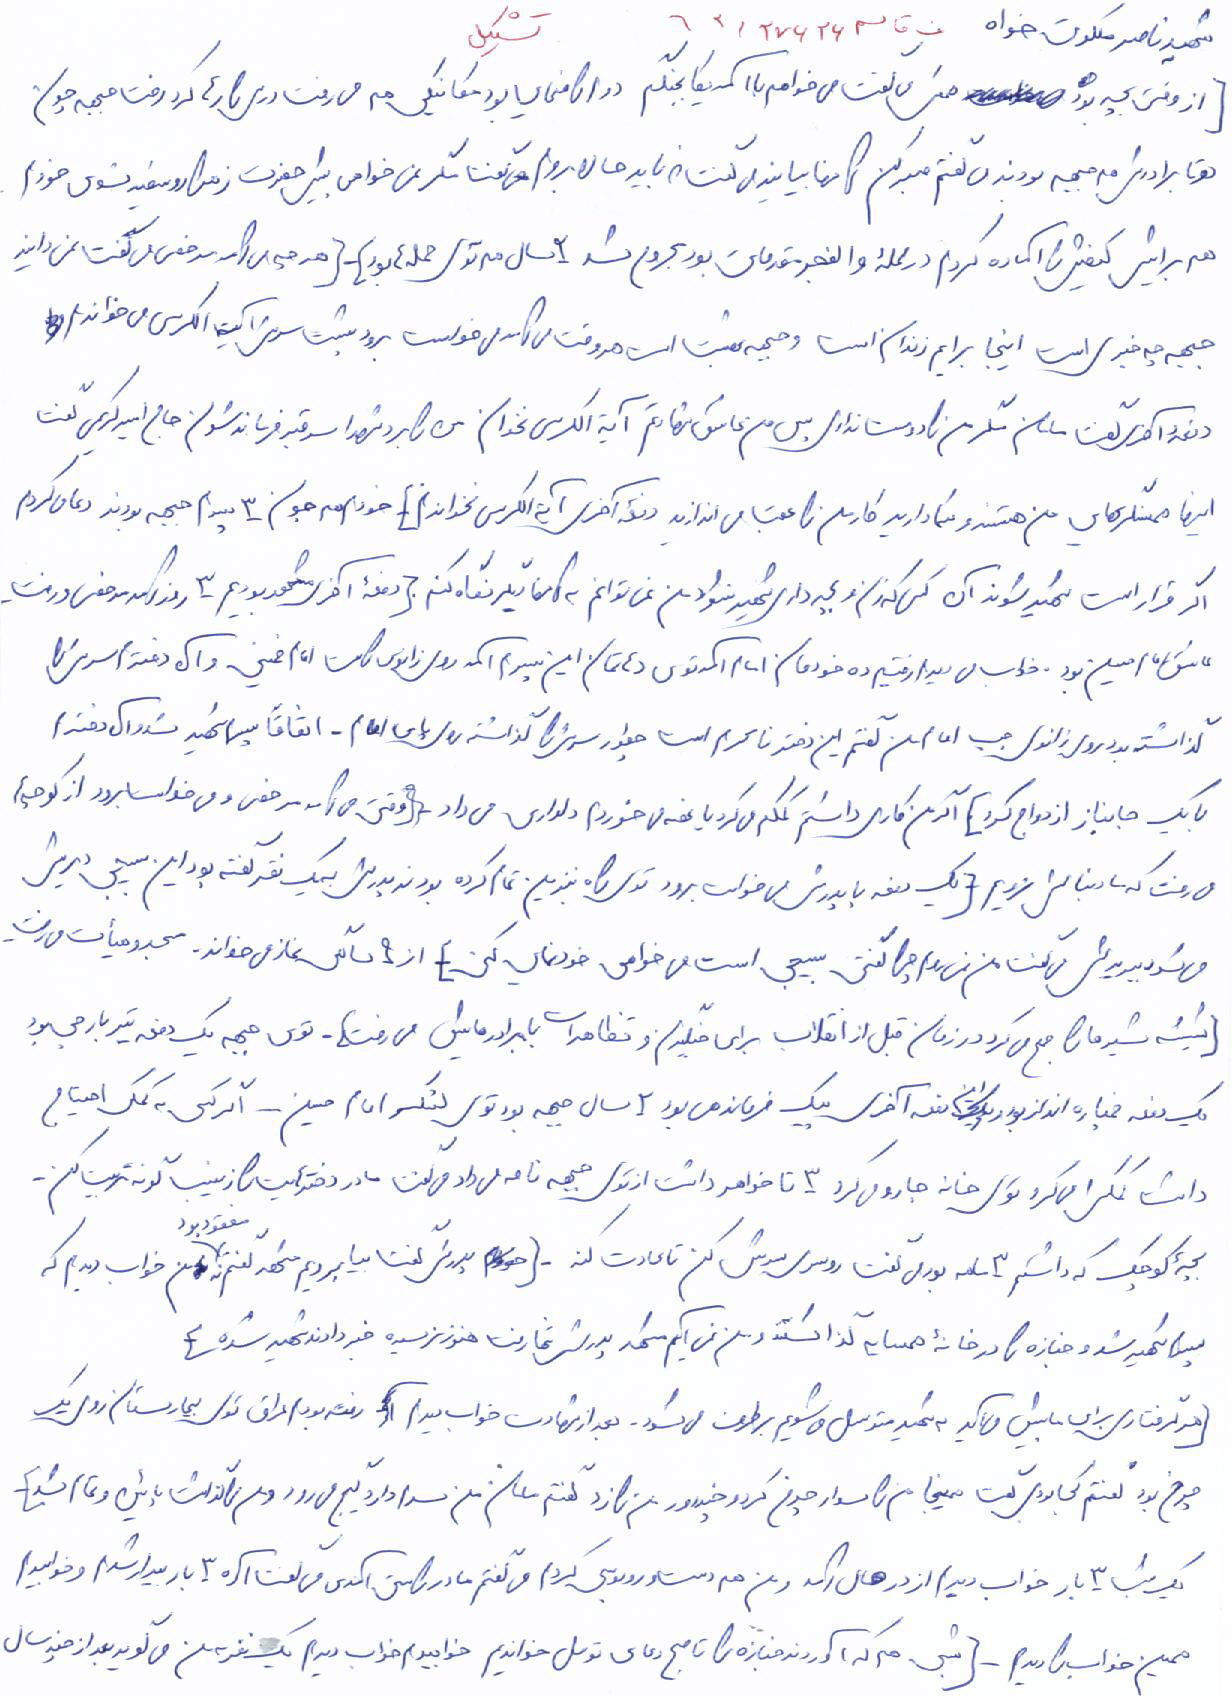 شهید ناصر ملکوت خواه
[از وقتی بچه بود همش می گفت می خواهم با آمریکا بجنگم دوم راهنمایی بود مکانیکی هم می رفت درس را رها کرد رفت جبهه چون
دوتا برادرش هم جبهه بودند می گفتم صبر کن آنها بیایند می گفت نه باید حالا بروم می گفت مگر نمی خواهی پیش حضرت زهرا رو سفید بشوی خودم
هم برایش کیفش را آماده کردم در عملۀ والفجر مقدماتی بود مجروح شد ۲ سال هم توی حمله ها بود]-{هر چی می آمد مرخصی می گفت نمی دانید
جبهه چه خبری است اینجا برایم زندان است و جبهه بهشت است هر وقت می آمد می خواست برود پشت سرش آیة الکرسی می خواندم
دفعۀ آخری گفت مامان مگر من را دوست نداری پس من عاشق شهادتم آیة الکرسی نخوان من را برد شهدا سر قبر فرمانده شون حاج امیر کریمی گفت
اینها همسنگرهای من هستند و شما دارید کار من را عقب می اندازید دفعه آخری آیة الکرسی نخواندم} خودم هم چون ۳ پسرم جبهه بودند دعا می کردم
اگر قرار است شهید شوند آن کسی که زن و بچه داری شهید نشود من نمی توانم به آنها دیگر نگاه کنم {دفعۀ آخری مشهد بودیم ۳ روز آمد مرخصی و رفت
عاشق امام حسین بود. خواب می دیدم رفتیم ده خودمان امام آمد توی دهاتمان این پسرم آمد روی زانوی راست امام خمینی و آن دخترم سرش را
گذاشته بود روی زانوی چپ امام من گفتم این دختر نامحرم است چطور سرش را گذاشته روی پای امام - اتفاقا پسرم شهید شد و آن دخترم
با یک جانباز ازدواج کرد} اگر من کاری داشتم کمکم می کرد یا غصه می خوردم دلداری می داد-{وقتی می آمد مرخصی و می خواست برود از کوچه ها
می رفت که ما دنبالش نرویم {یک دفعه با پدرش می خواست برود توی راه بنزین تمام کرده بودند پدرش به یک نفر گفته بود این بسیجی دیرش
می شود ببریدش می گفت من نمی روم چرا گفتی بسیجی است می خواهی خودنمایی کنی} از ۹ سالگی نماز می خواند. مسجد و هیأت می رفت
{شیشه شیرها را جمع می کرد در زمان قبل از انقلاب برای جنگیدن و تظاهرات با برادرهایش می رفت}- توی جبهه یک دفعه تیربارچی بود
یک دفعه خمپاره انداز بود و دفعه آخری پیک فرمانده هی بود ۲ سال جبهه بود توی لشکر امام حسین - اگر کسی به کمک احتیاج
داشت کمکش می کرد توی خانه جارو می کرد ۳ تا خواهر داشت از توی جبهه نامه می داد می گفت مادر دخترهایت را زینب گونه تربیت کن -
بچۀ کوچک که داشتم ۳ ساله بود می گفت روسری سرش کن تا عادت کند -{پدرش گفت بیا برویم مشهد گفتم نه من خواب دیدم که
مفقود بود
پسرم شهید شد و جنازه را در خانۀ همسایه گذاشتند و من نمی آیم مشهد پدرش تنها رفت هنوز نرسیده خبر دادند شهید شده}
{هر گرفتاری برای ما پیش می آید به شهید متوسل می شویم برطرف می شود - بعد از شهادت خواب دیدم رفته بودم عراق توی بیمارستان روی یک
چرخ بود گفتم کجا بودی گفت همینجا من را سوار چرخ کرد و چند دور من را زد گفتم مامان من سرم دارد گیج می رود و من را گذاشت پائین و تمام شد}
یک شب ۳ بار خواب دیدم از در هال آمد و من هم دست و روبوسی کردم می گفتم مادر راستی آمدی می گفت آره ۳ بار بیدار شدم و خوابیدم
همین خواب را دیدم - {شبی هم که آوردند جنازه را تا صبح دعای توسل خواندیم خوابیدم خواب دیدم یک نفر به من می گوید بعد از چند سال